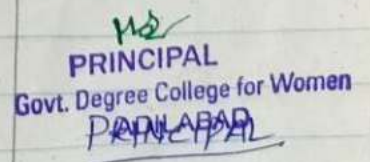 PRINCIPAL
Govt. Degree College for Women
PRINCIPAL